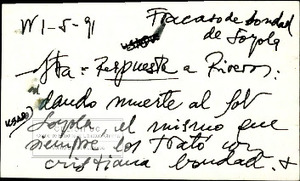 W 1-5-91
Fracaso de bondad
de Loyola
Respuesta a Riveros:
dando muerte al Gob
Loyola, el mismo que
siempre los trató con
cristiana bondad.